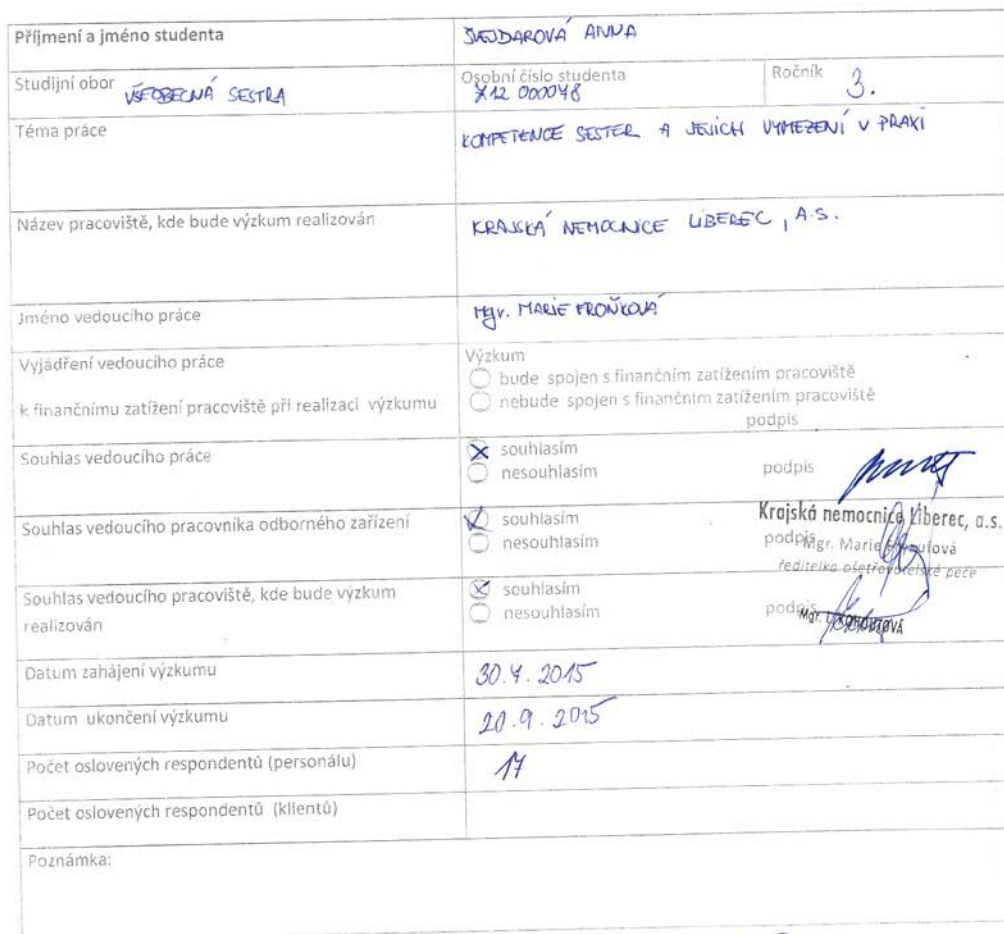 Příjmení a jméno studenta
ŠVEJDAROVÁ ANNA
Studijní obor VŠEOBECNÁ SESTRA
Osobní číslo studenta
Z12 000048
Ročník 3.
Téma práce
KOMPETENCE SESTER A JEJICH VYMEZENÍ V PRAXI
Název pracoviště, kde bude výzkum realizován
KRAJSKÁ NEMOCNICE LIBEREC, A.S.
Jméno vedoucího práce
Mgr. MARIE FROŇKOVÁ
Vyjádření vedoucího práce
k finančnímu zatížení pracoviště při realizaci výzkumu
Výzkum
bude spojen s finančním zatížením pracoviště
nebude spojen s finančním zatížením pracoviště
podpis
Souhlas vedoucího práce
souhlasím
nesouhlasím podpis
Souhlas vedoucího pracovníka odborného zařízení
souhlasím
nesouhlasím podpis
Krajská nemocnice Liberec, a.s.
Mgr. Marie
ředitelka ošetřovatelské péče
Souhlas vedoucího pracoviště, kde bude výzkum
realizován
souhlasím
nesouhlasím podpis
Mgr.
Datum zahájení výzkumu
30.4.2015
Datum ukončení výzkumu
20.9.2015
Počet oslovených respondentů (personálu)
17
Počet oslovených respondentů (klientů)
Poznámka: